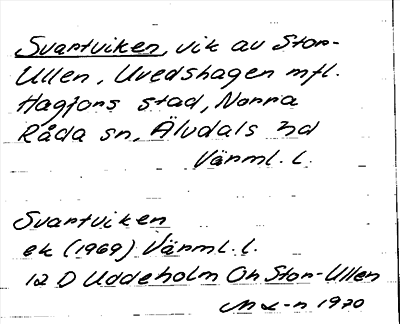 Svartviken, vik av Stor-
Ullen, Uvedshagen mfl.
Hagfors stad, Norra
Råda sn, Älvdals hd
Värml. l.
Svartviken
ek (1969) Värml. l.
12 D Uddeholm Om Stor-Ullen
1970